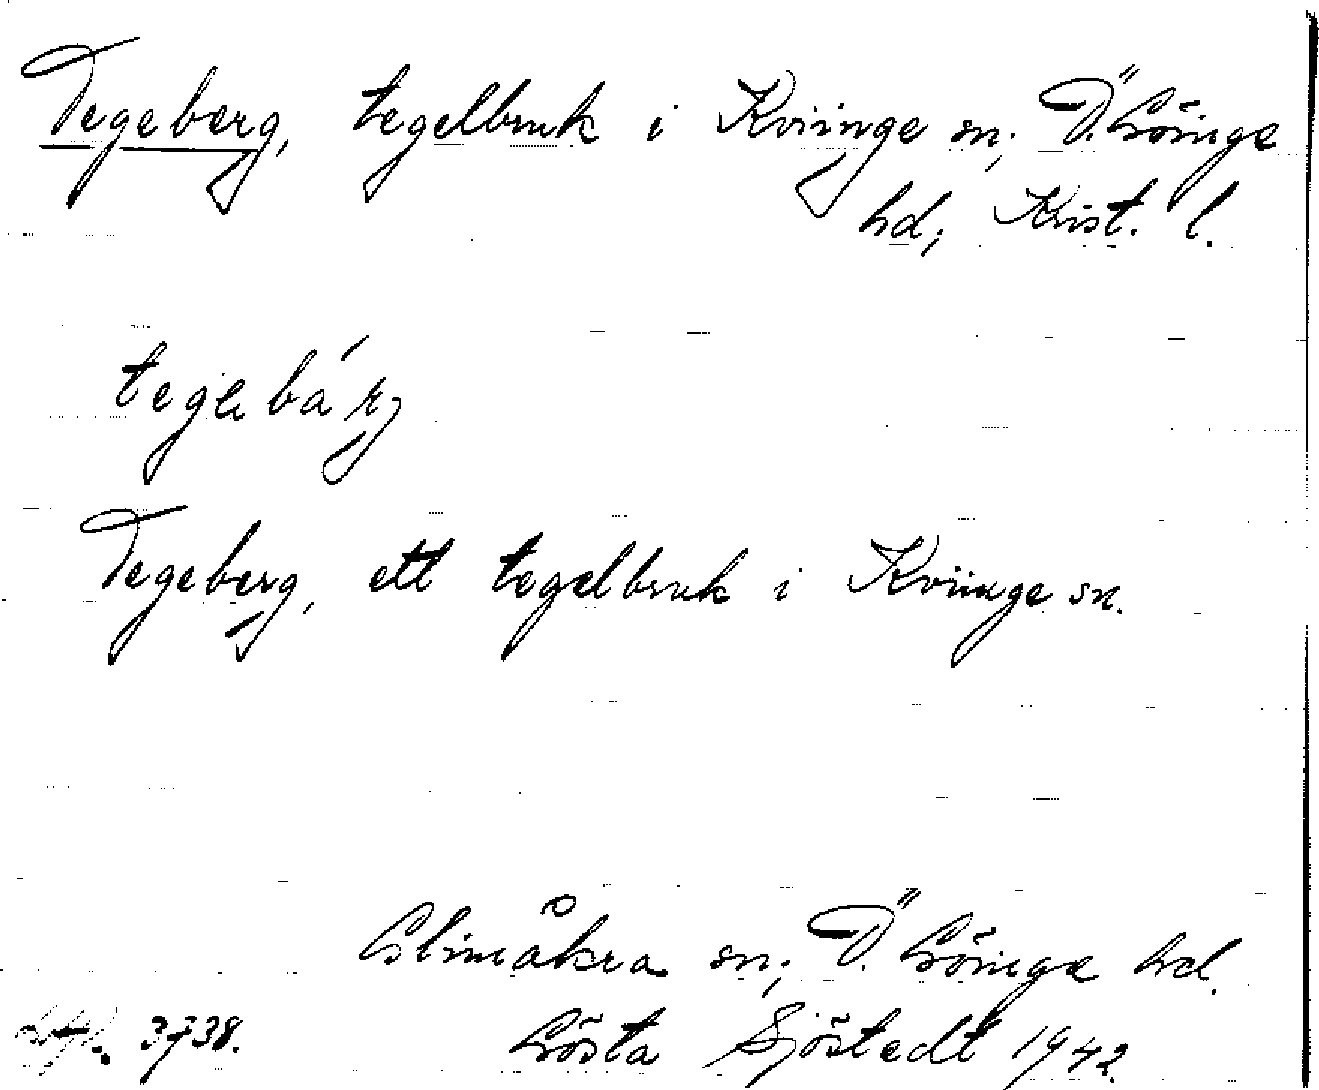 Tegeberg, tegelbruk i Kviinge sn; Ö. Göinge
hd; Krist. l.
tegebárj
Tegeberg, ett tegelbruk i Kviinge sn.
Glimåkra sn; Ö. Göinge hd.
3738. Gösta Sjöstedt 1942.